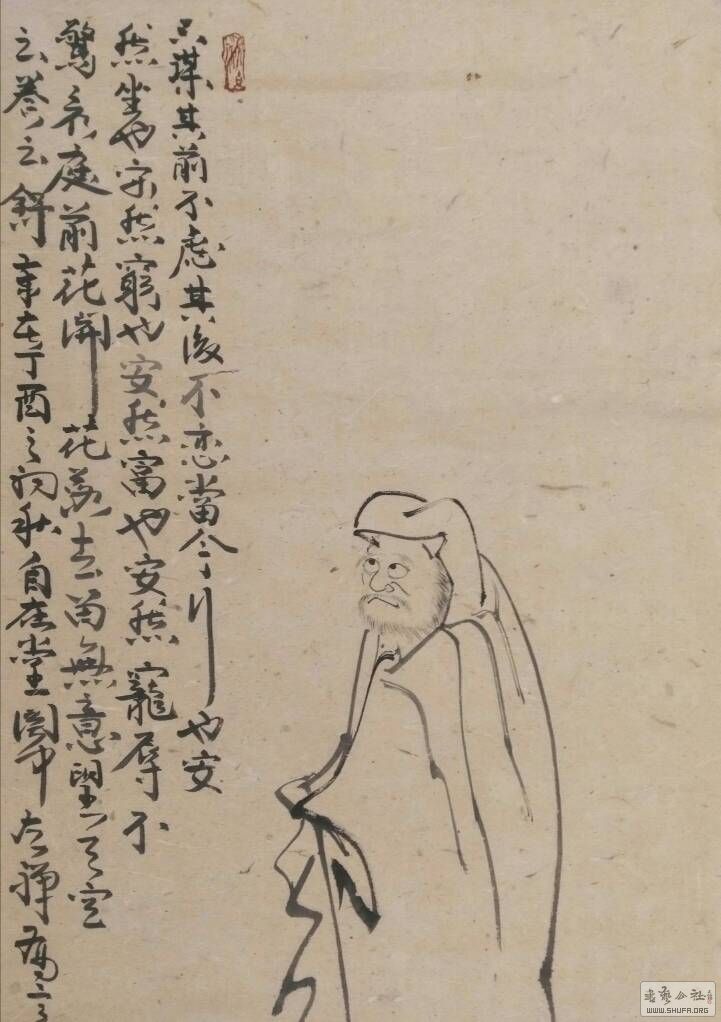 不谋其前不慮其後不恋當今行也安
然坐也安然窮也安然富也安然寵辱不
驚看庭前花開花落去留無意望天空
云卷云舒 章在丁酉之初秋自在堂閣中 
書艺公社
WWW.SHUFA.ORG